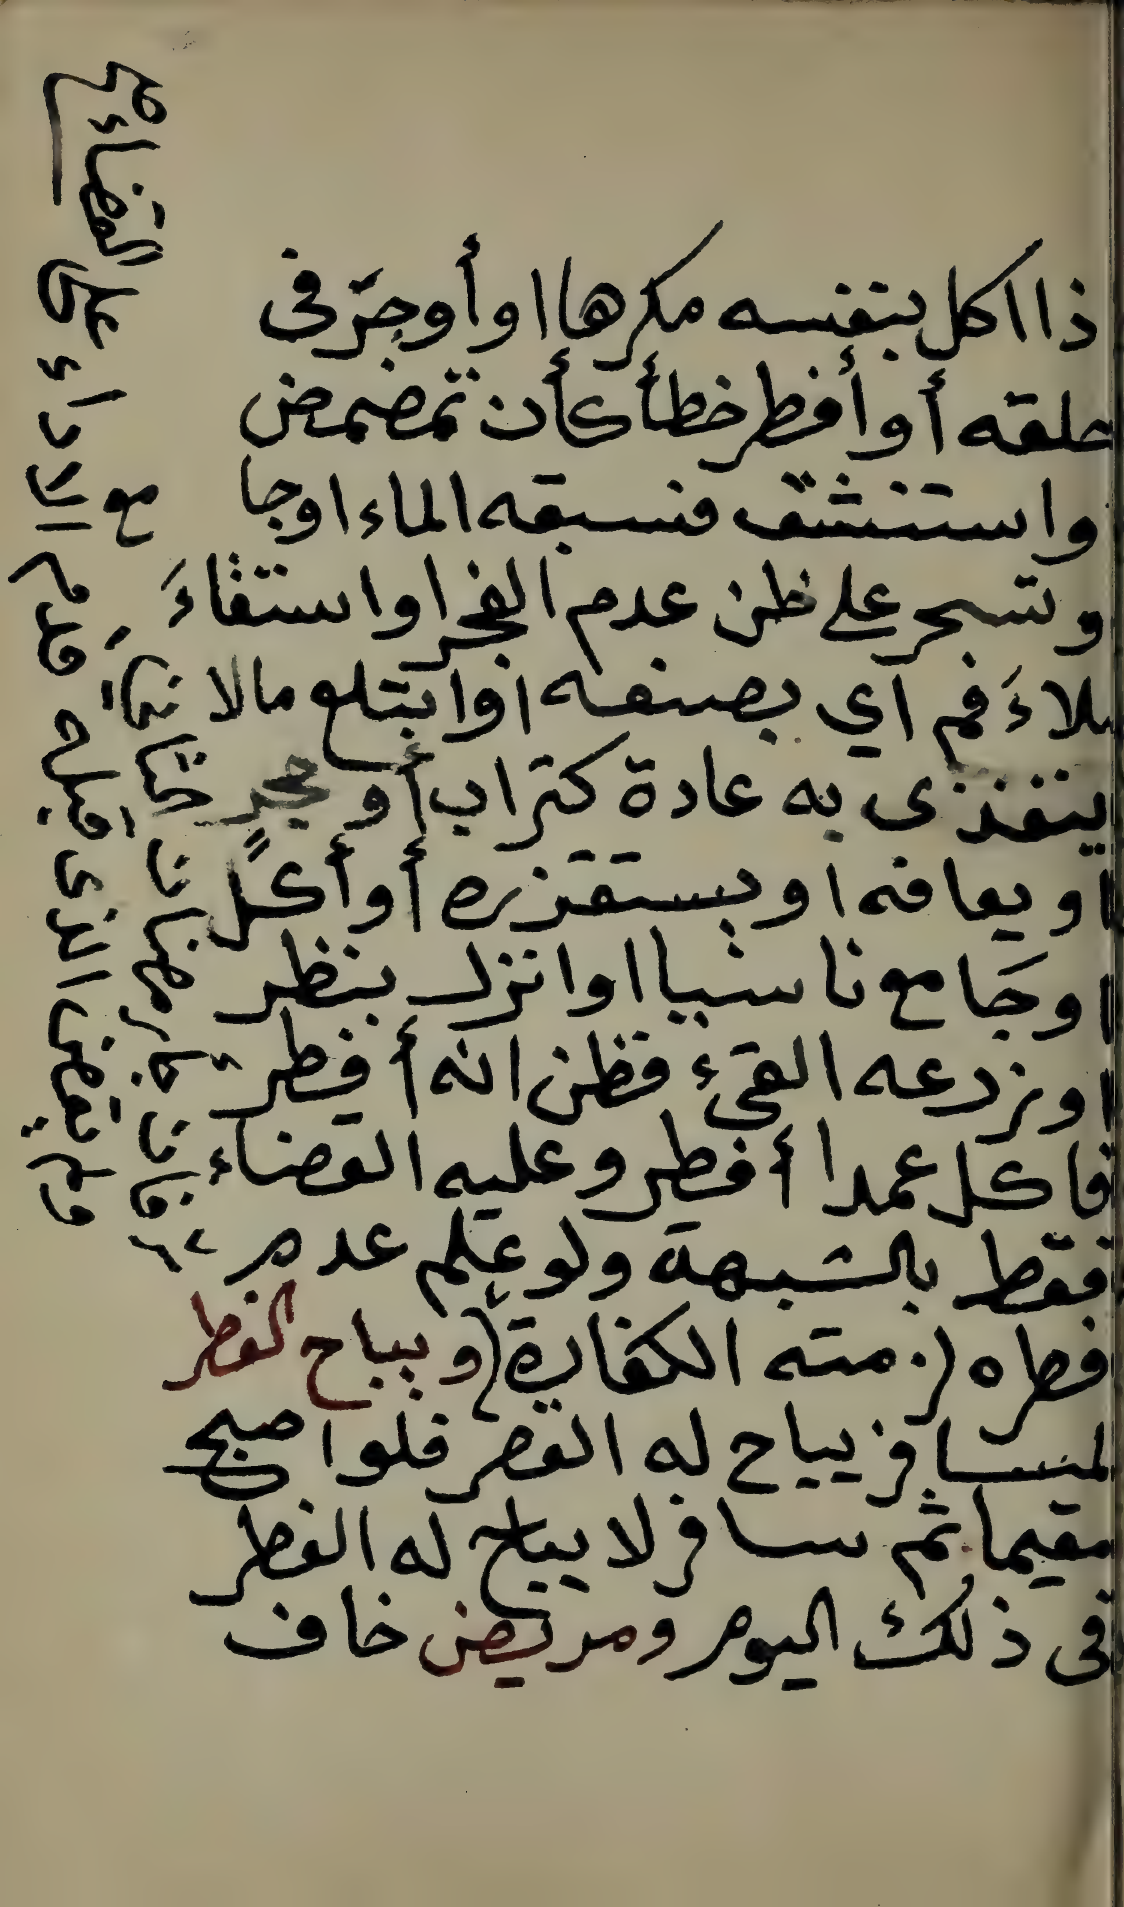 ذا اكل بنفسه مكرها او أوجرّ فى
حلقه أو أفطر خطأ كأن تمضمض
واستنشق فسبقه الماء او جا
وتسحر على ظن عدم الفجر او استقاءَ
ملاءَ فم اي بصنعه او ابتلع مالا
يتغذى به عادة كتراب أو حجر
او يعافه او يستقذره أو أكل
او جَامع ناسيا او انزل بنظر
او نزرعه القيء فظن انه أفطر
فاكل عمدا أفطر وعليه القضاء
فقط بالشبهة ولو عَلِم عدم
فطره لزمته الكفارة (ويباح الفطر
لمسافر يباح له القصر فلو اصبح
مقيما ثم سافر لا يباح له الفطر
فى ذلك اليوم ومريض خاف
فان جاء رمضان الثاني
ولم يقض الذى قبله قدم الاداء على القضاء